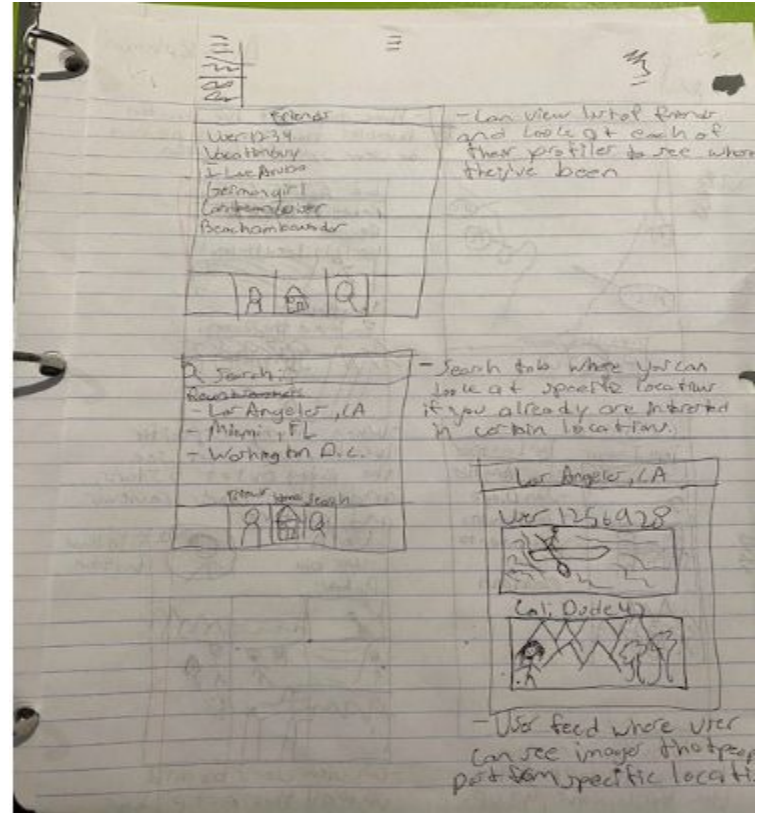 Friends
User1234
Vacationguy
I Luv Aruba
Germangirl
Beachambounder
- Can view list of friends
and look at each of
their profiles to see where
they've been
Search:
- Los Angeles, CA
- Miami, FL
- Washington D.C.
Friends Home Search
- Search tab where you can
look at specific locations
if you already are interested
in certain locations.
Los Angeles, CA
User 1256928
Cali Dude 42
- User feed where user
can see images that peop
post from specific locati